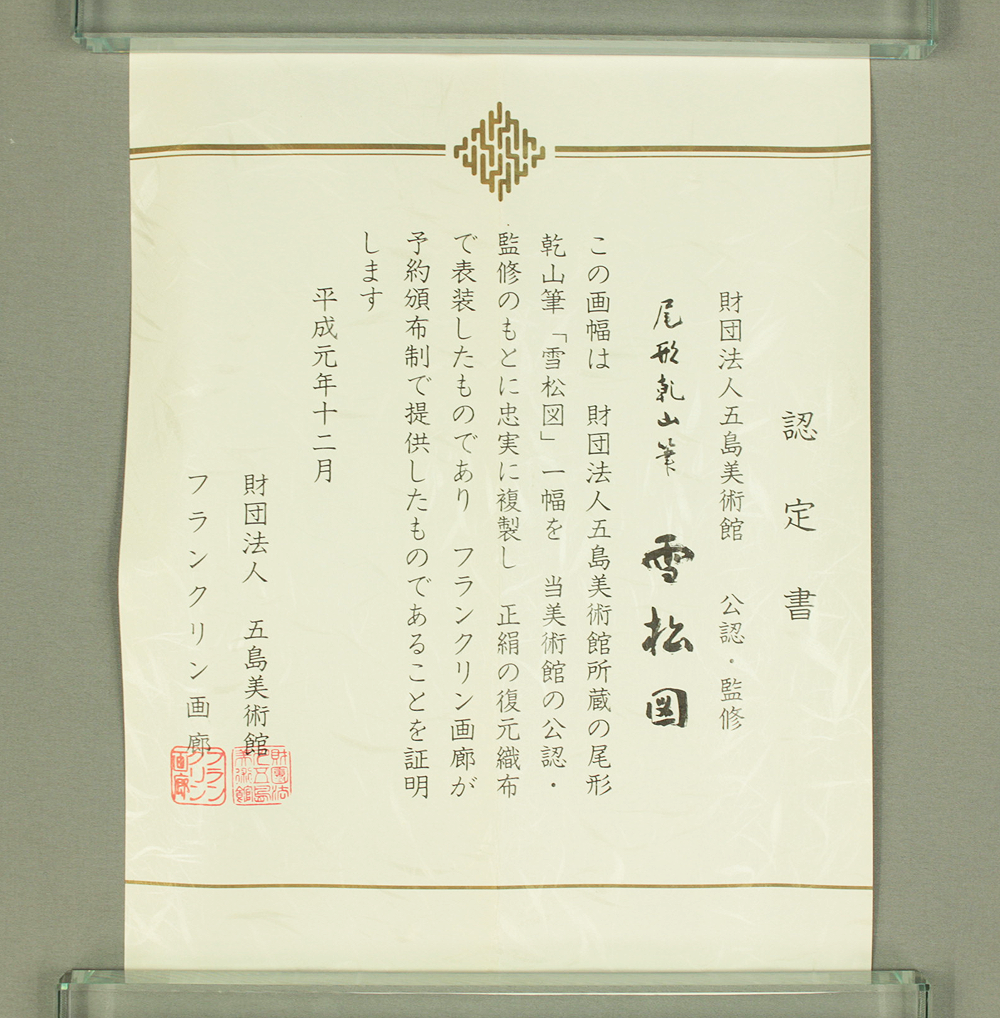 認定書
財団法人五島美術館　公認・監修
尾形乾山筆　雪松図
この画幅は　財団法人五島美術館所蔵の尾形
乾山筆「雪松図」一幅を　当美術館の公認・
監修のもとに忠実に複製し　正絹の復元織布
で表装したものであり　フランクリン画廊が
予約頒布制で提供したものであることを証明
します
平成元年十二月
財団法人　五島美術館
財團法人五島美術館
フランクリン画廊
フランクリン画廊